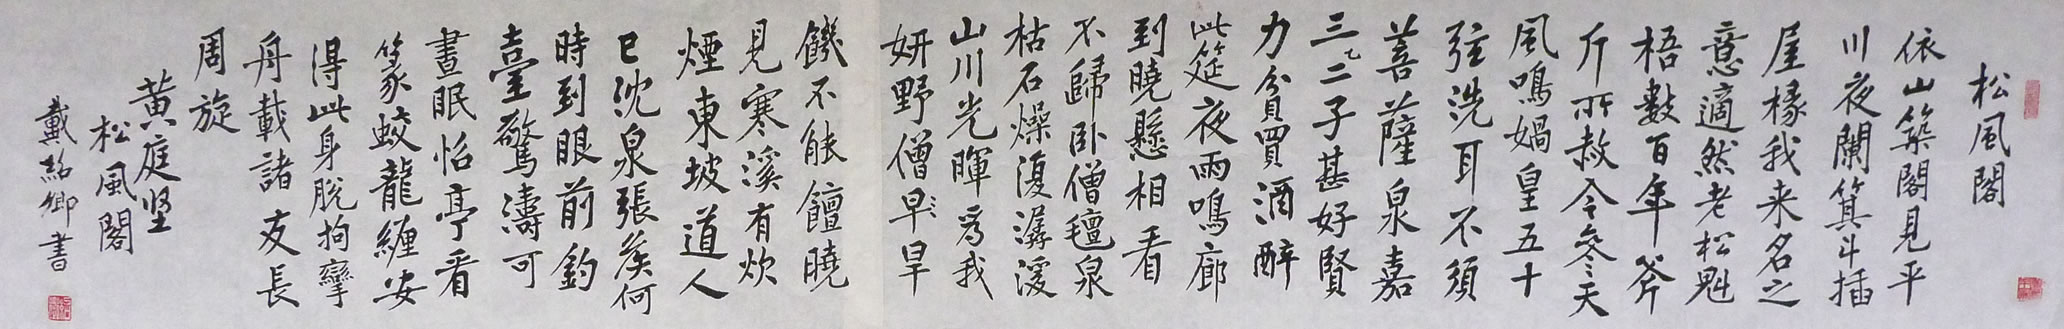 松風閣
依山築閣見平
川夜闌箕斗插
屋椽我来名之
意適然老松魁
梧數百年斧
斤所赦今参天
風鳴媧皇五十
弦洗耳不須
菩薩泉嘉
三二子甚好賢
力貧買酒醉
此筵夜雨鳴廊
到曉懸相看
不歸卧僧氊泉
枯石燥復潺湲
山川光暉為我
妍野僧早旱
饑不能饘曉
見寒溪有炊
煙東坡道人
已沈泉張侯何
時到眼前釣
臺驚濤可
晝眠怡亭看
篆蛟龍纏安
得此身脫拘攣
舟載諸友長
周旋
黄庭坚
松風閣
戴紹卿書